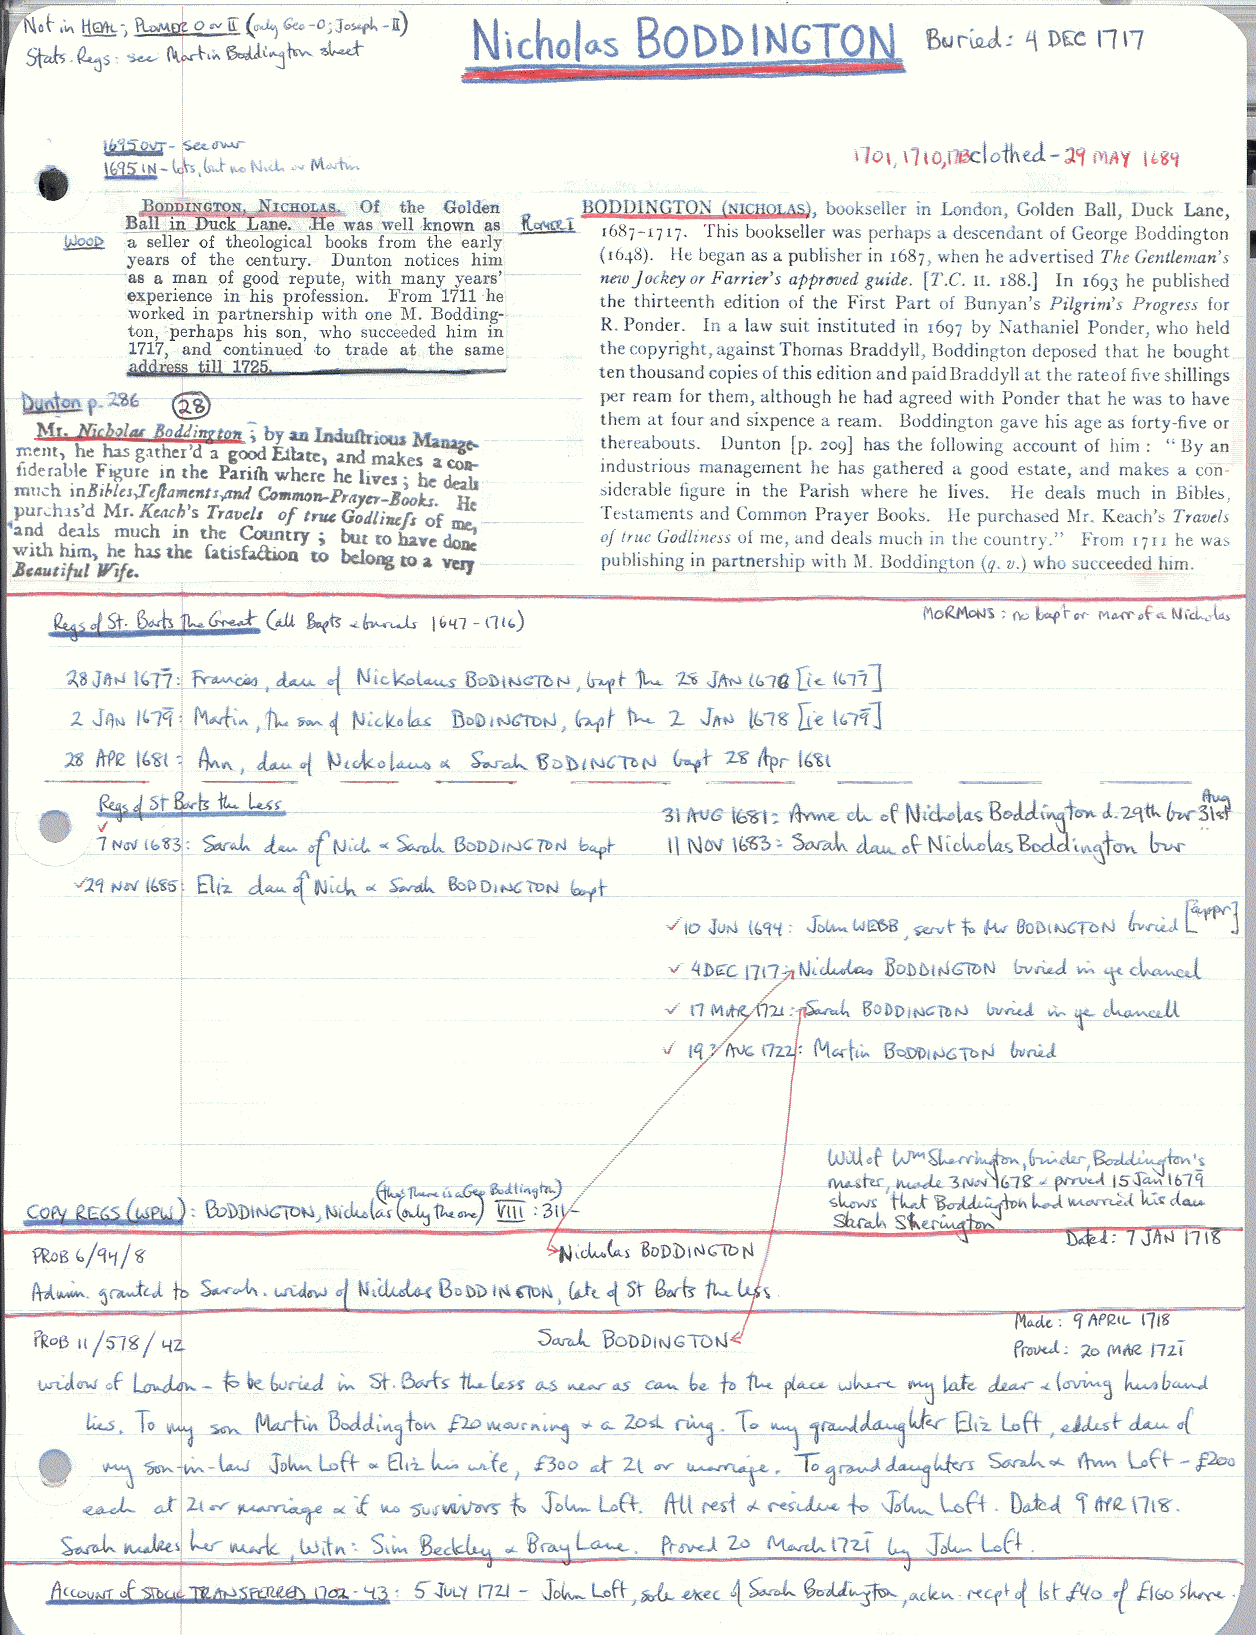 Not in HEAL; PLOMER O or II (only Geo-O; Joseph-II)
Stats. Regs: see Martin Boddington sheet
Nicholas BODDINGTON
Buried: 4 DEC 1717
1695 OUT - see over
1695 IN - lots, but no Nich or Martin
1701, 1710, 1713 clothed - 29 MAY 1689
BODDINGTON, NICHOLAS. Of the Golden
Ball in Duck Lane. He was well known as
WOOD
a seller of theological books from the early
years of the century. Dunton notices him
as a man of good repute, with many years'
experience in his profession. From 1711 he
worked in partnership with one M. Bodding-
ton, perhaps his son, who succeeded him in
1717, and continued to trade at the same
address till 1725.
Dunton p. 286 (28)
Mr. Nicholas Boddington; by an Induſtrious Manage-
ment, he has gather'd a good Eſtate, and makes a con-
ſiderable Figure in the Pariſh where he lives; he deals
much in Bibles, Teſtaments, and Common-Prayer-Books. He
purchas'd Mr. Keach's Travels of true Godlineſs of me,
and deals much in the Country; but to have done
with him, he has the ſatisfaction to belong to a very
Beautiful Wife.
PLOMER I
BODDINGTON (NICHOLAS), bookseller in London, Golden Ball, Duck Lane,
1687-1717. This bookseller was perhaps a descendant of George Boddington
(1648). He began as a publisher in 1687, when he advertised The Gentleman's
new Jockey or Farrier's approved guide. [T.C. II. 188.] In 1693 he published
the thirteenth edition of the First Part of Bunyan's Pilgrim's Progress for
R. Ponder. In a law suit instituted in 1697 by Nathaniel Ponder, who held
the copyright, against Thomas Braddyll, Boddington deposed that he bought
ten thousand copies of this edition and paid Braddyll at the rate of five shillings
per ream for them, although he had agreed with Ponder that he was to have
them at four and sixpence a ream. Boddington gave his age as forty-five or
thereabouts. Dunton [p. 209] has the following account of him: "By an
industrious management he has gathered a good estate, and makes a con-
siderable figure in the Parish where he lives. He deals much in Bibles,
Testaments and Common Prayer Books. He purchased Mr. Keach's Travels
of true Godliness of me, and deals much in the country." From 1711 he was
publishing in partnership with M. Boddington (q. v.) who succeeded him.
MORMONS: no bapt or marr of a Nicholas
Regs of St. Barts The Great (all Bapts & burials 1647-1716)
28 JAN 1677: Frances, dau of Nickolaus BODINGTON, bapt the 28 JAN 1676 [ie 1677]
2 JAN 1679: Martin, the son of Nickolas BODINGTON, bapt the 2 JAN 1678 [ie 1679]
28 APR 1681: Ann, dau of Nickolaus & Sarah BODINGTON bapt 28 Apr 1681
Regs of St Barts the Less
31 AUG 1681: Anne ch of Nicholas Boddington d. 29th bur 31st Aug
7 NOV 1683: Sarah dau of Nich & Sarah BODDINGTON bapt
11 NOV 1683: Sarah dau of Nicholas Boddington bur
29 NOV 1685: Eliz dau of Nich & Sarah BODDINGTON bapt
10 JUN 1694: John WEBB, servt to Mr BODINGTON buried [appr]
4 DEC 1717: Nicholas BODDINGTON buried in ye chancel
17 MAR 1721: Sarah BODDINGTON buried in ye chancell
19? AUG 1722: Martin BODDINGTON buried
Will of Wm Sherrington, binder, Boddington's
master, made 3 Nov 1678 & proved 15 Jan 1679
shows that Boddington had married his dau
Sarah Sherington
(tho' there is a Geo Bodlington)
COPY REGS (WPW): BODDINGTON, Nicholas (only the one) VIII: 311-
PROB 6/94/8
Nicholas BODDINGTON
Dated: 7 JAN 1718
Admin. granted to Sarah. widow of Nicholas BODDINGTON, late of St Barts the Less
PROB 11/578/42
Sarah BODDINGTON
Made: 9 APRIL 1718
Proved: 20 MAR 1721
widow of London - to be buried in St. Barts the less as near as can be to the place where my late dear & loving husband
lies. To my son Martin Boddington £20 mourning & a 20sh ring. To my granddaughter Eliz Loft, eldest dau of
my son-in-law John Loft & Eliz his wife, £300 at 21 or marriage. To granddaughters Sarah & Ann Loft - £200
each at 21 or marriage & if no survivors to John Loft. All rest & residue to John Loft. Dated 9 APR 1718.
Sarah makes her mark, Witn: Sim Beckley & Bray Lane. Proved 20 March 1721 by John Loft.
ACCOUNT of STOCK TRANSFERRED 1702-43: 5 JULY 1721 - John Loft, sole exec of Sarah Boddington, ackn. recpt of 1st £40 of £160 share.